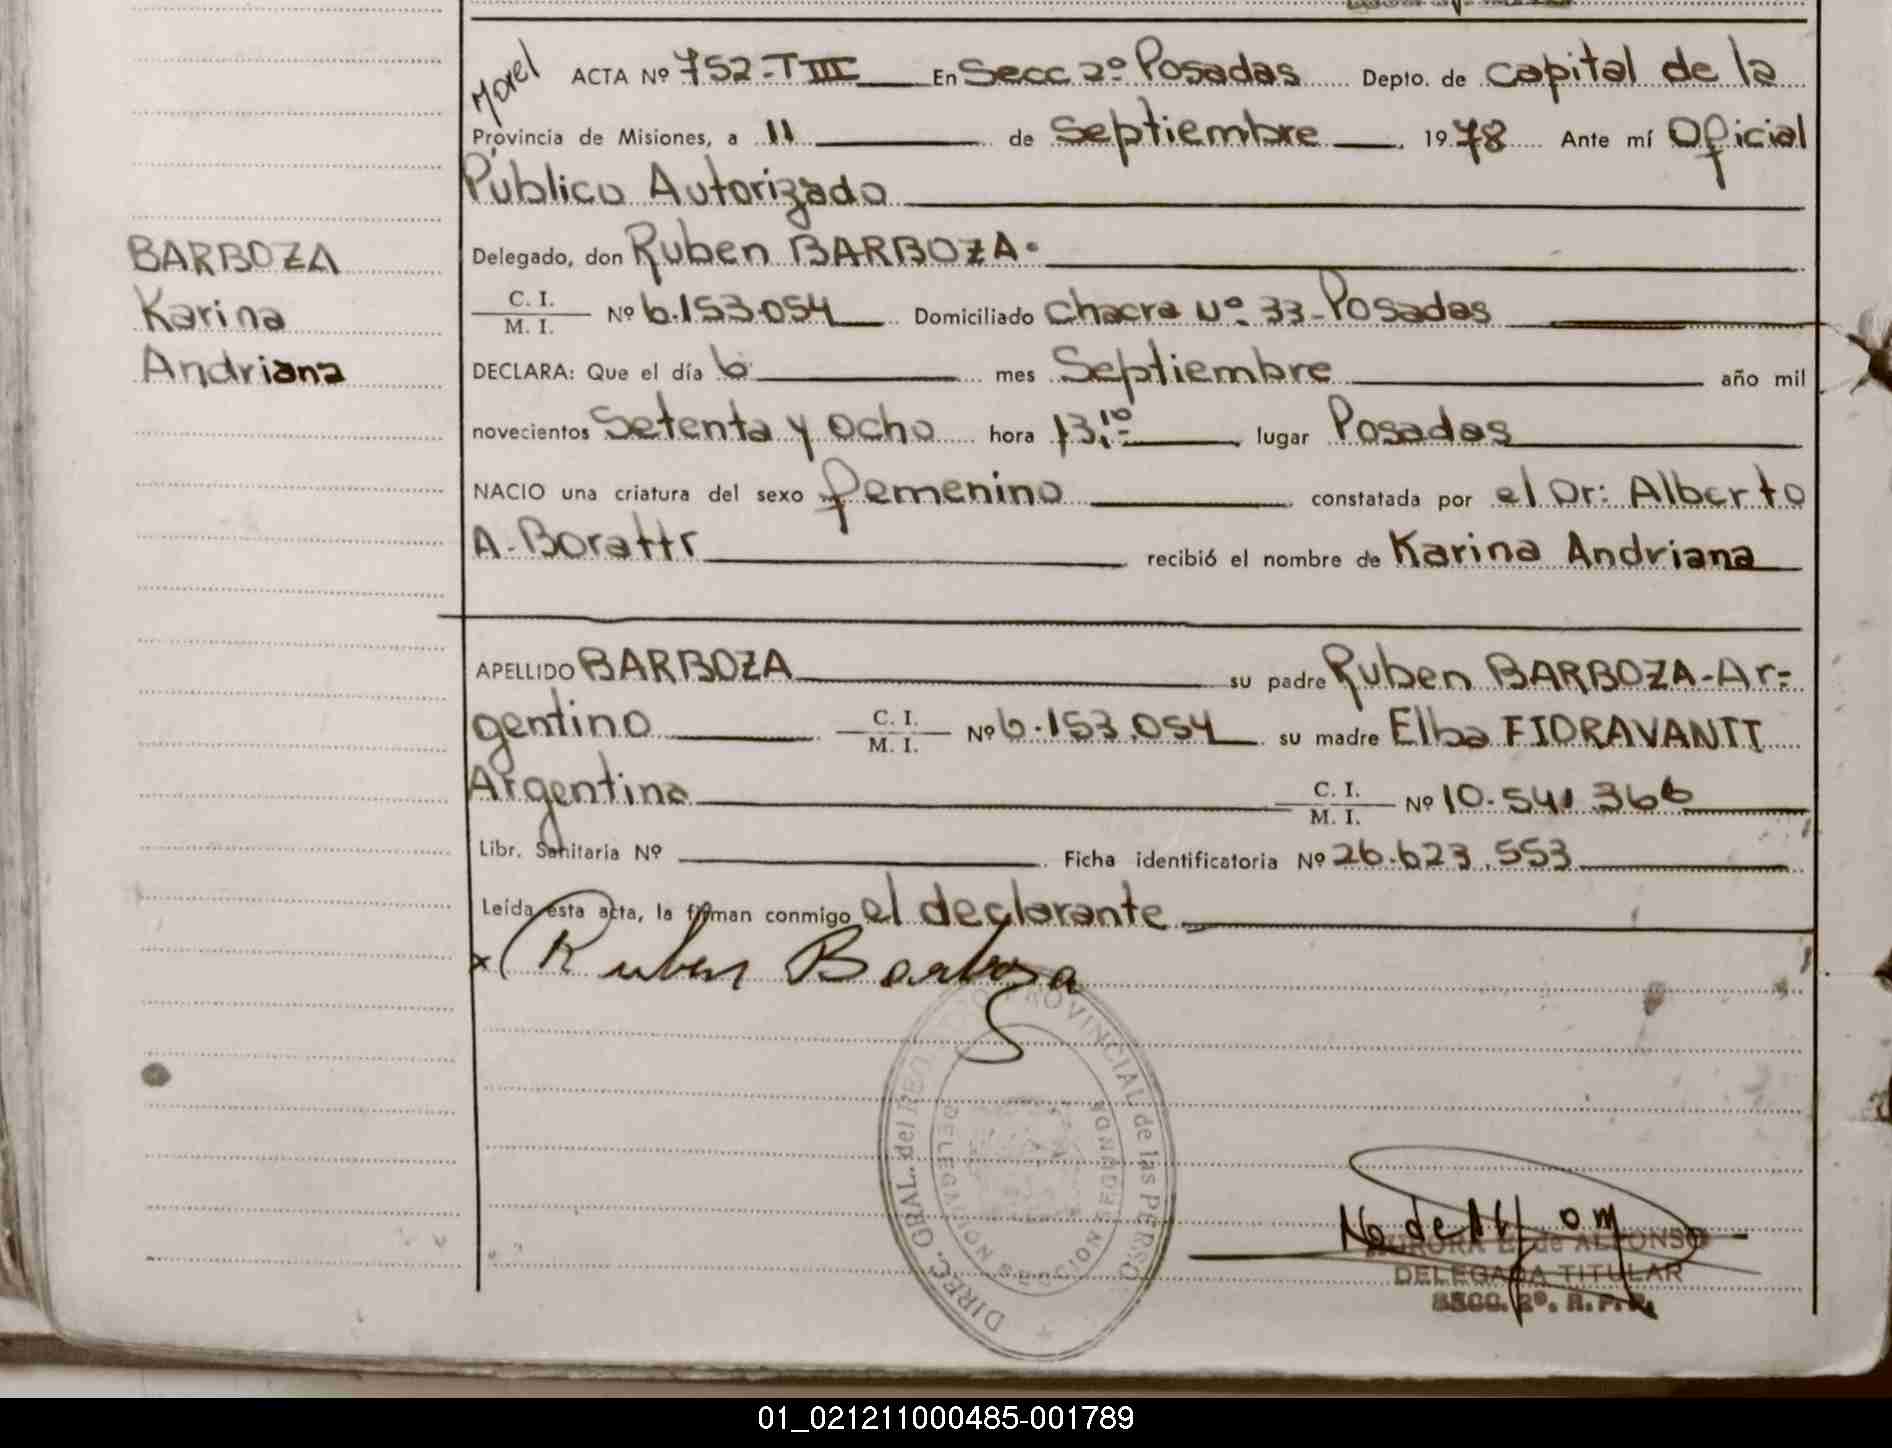 Morel
ACTA Nº 752-TIII En Secc 2º Posadas Depto. de Capital de la
Provincia de Misiones, a 11 de Septiembre 1978 Ante mí Oficial
Público Autorizado
Delegado, don Ruben BARBOZA.
C. I.
M. I. Nº 6.153.054 Domiciliado Chacra Nº 33-Posadas
DECLARA: Que el día 6 mes Septiembre año mil
novecientos Setenta y ocho hora 13,10 lugar Posadas
NACIO una criatura del sexo femenino constatada por el Dr: Alberto
A. Borattr recibió el nombre de Karina Andriana
BARBOZA
Karina
Andriana
APELLIDO BARBOZA su padre Ruben BARBOZA-Ar=
gentino C. I. M. I. Nº 6.153.054 su madre Elba FIORAVANTI
Argentina C. I. M. I. Nº 10.541.366
Libr. Sanitaria Nº Ficha identificatoria Nº 26.623.553
Leída esta acta, la firman conmigo el declarante
x Ruben Barboza
DIREC. GRAL. del REG. PROVINCIAL de las PERSO
DELEGACION SECCION POSADAS
AURORA E. de ALFONSO
DELEGADA TITULAR
SECC. 2º. R. P. P.
01_021211000485-001789